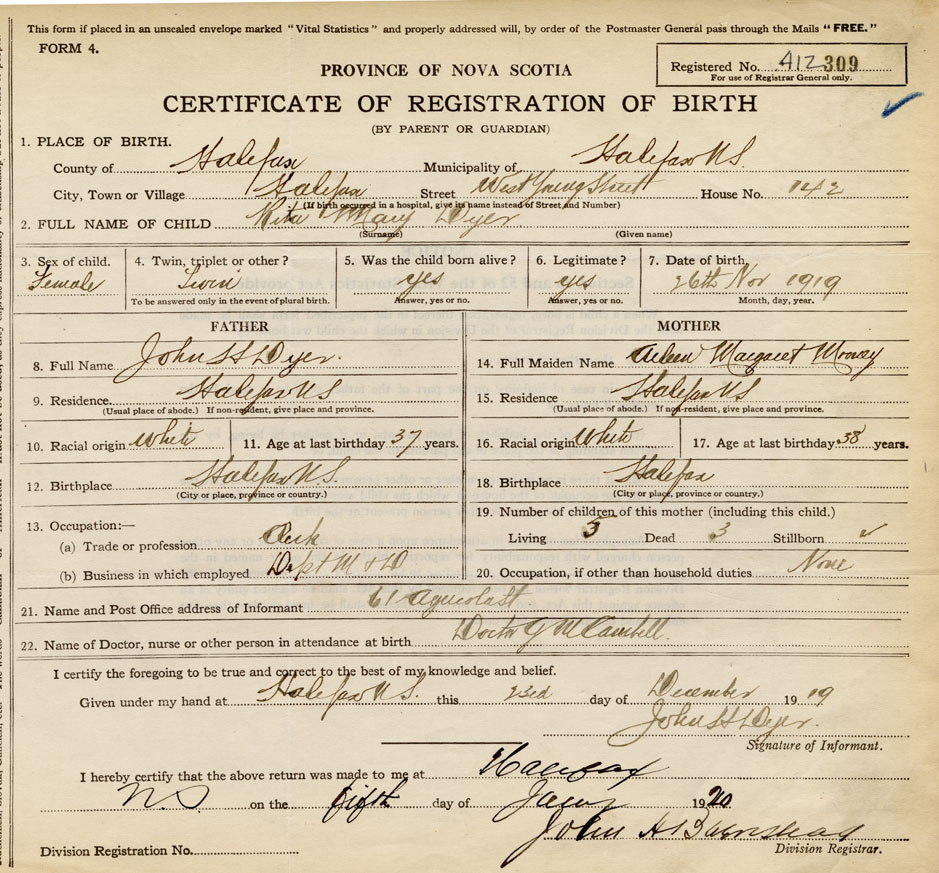 This form if placed in an unsealed envelope marked "Vital Statistics" and properly addressed will, by order of the Postmaster General pass through the Mails "FREE."
FORM 4.
Registered No. 412309
For use of Registrar General only.
PROVINCE OF NOVA SCOTIA
CERTIFICATE OF REGISTRATION OF BIRTH
(BY PARENT OR GUARDIAN)
1. PLACE OF BIRTH.
County of Halifax Municipality of Halifax N S.
City, Town or Village Halifax Street West Young Street House No. 142
(If birth occurred in a hospital, give its name instead of Street and Number)
2. FULL NAME OF CHILD Rita Mary Dyer
(Surname) (Given name)
3. Sex of child. Female
4. Twin, triplet or other? Twin
To be answered only in the event of plural birth.
5. Was the child born alive? yes
Answer, yes or no.
6. Legitimate? yes
Answer, yes or no.
7. Date of birth. 26th Nov 1919
Month, day, year.
FATHER
8. Full Name John H Dyer.
9. Residence. Halifax N S
(Usual place of abode.) If non-resident, give place and province.
10. Racial origin White 11. Age at last birthday 37 years.
12. Birthplace Halifax N S.
(City or place, province or country.)
13. Occupation:—
(a) Trade or profession Clerk
(b) Business in which employed Dept M & D
MOTHER
14. Full Maiden Name Margaret
15. Residence Halifax N S
(Usual place of abode.) If non-resident, give place and province.
16. Racial origin White 17. Age at last birthday 38 years.
18. Birthplace Halifax
(City or place, province or country.)
19. Number of children of this mother (including this child.)
Living 5 Dead 3 Stillborn ✓
20. Occupation, if other than household duties None
21. Name and Post Office address of Informant 61
22. Name of Doctor, nurse or other person in attendance at birth Doctor G M
I certify the foregoing to be true and correct to the best of my knowledge and belief.
Given under my hand at Halifax N S. this 23rd day of December 1919
John H Dyer.
Signature of Informant.
I hereby certify that the above return was made to me at Halifax
N S on the fifth day of Jany 1920
John H Barnstead
Division Registrar.
Division Registration No.